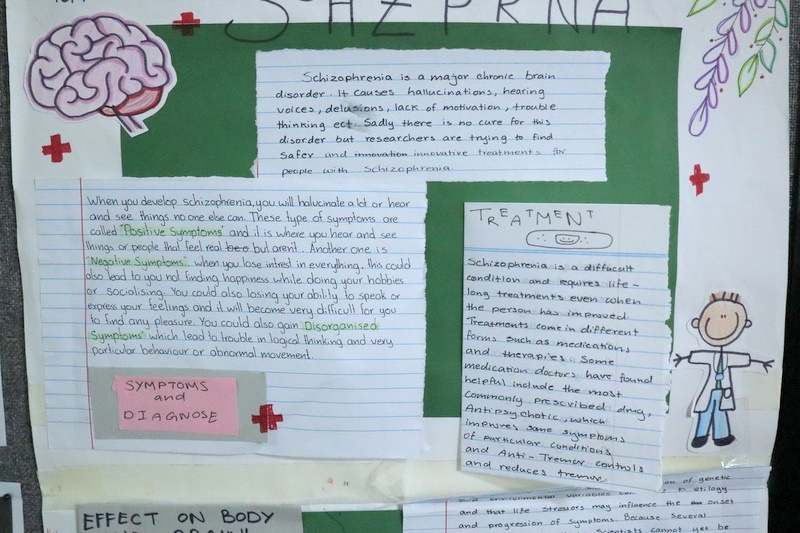 Schizophrenia is a major chronic brain
disorder. It causes hallucinations, hearing
voices, delusions, lack of motivation, trouble
thinking ect. Sadly there is no cure for this
disorder but researchers are trying to find
safer and innovation innovative treatments for
people with Schizophrenia
When you develop schizophrenia, you will halucinate a lot or hear
and see things no one else can. These type of symptoms are
called "Positive Symptoms" and it is where you hear and see
things or people that feel real but arent. Another one is
"Negative Symptoms". when you lose intrest in everything, this could
also lead to you not finding happiness while doing your hobbies
or socialising. You could also losing your ability to speak or
express your feelings and it will become very difficult for you
to find any pleasure. You could also gain Disorganised
Symptoms" which lead to trouble in logical thinking and very
particular behaviour or abnormal movement.
SYMPTOMS
and
DIAGNOSE
TREATMENT
Schizophrenia is a diffucult
condition and requires life-
long treatments even when
the person has improved.
Treatments come in different
forms such as medications
and therapies. Some
medication doctors have found
helpful include the most
commonly prescribed drug,
Antipsychotic, which
improves some symptoms
of particular conditions
and Anti-Tremor controls
and reduces tremor.
EFFECT ON BODY
of genetic
environmental variables
and that life stressors may influence the onset
and progression of symptoms. Because several
Scientists cannot yet be